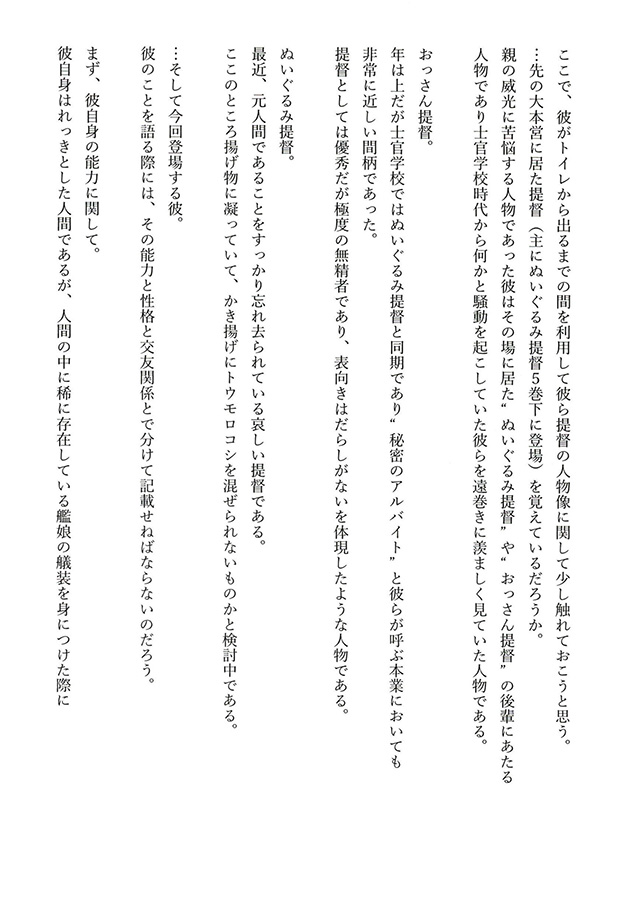 ここで、彼がトイレから出るまでの間を利用して彼ら提督の人物像に関して少し触れておこうと思う。
…先の大本営に居た提督（主にぬいぐるみ提督５巻下に登場）を覚えているだろうか。
親の威光に苦悩する人物であった彼はその場に居た“ぬいぐるみ提督”や“おっさん提督”の後輩にあたる
人物であり士官学校時代から何かと騒動を起こしていた彼らを遠巻きに羨ましく見ていた人物である。
おっさん提督。
年は上だが士官学校ではぬいぐるみ提督と同期であり“秘密のアルバイト”と彼らが呼ぶ本業においても
非常に近しい間柄であった。
提督としては優秀だが極度の無精者であり、表向きはだらしがないを体現したような人物である。
ぬいぐるみ提督。
最近、元人間であることをすっかり忘れ去られている哀しい提督である。
ここのところ揚げ物に凝っていて、かき揚げにトウモロコシを混ぜられないものかと検討中である。
…そして今回登場する彼。
彼のことを語る際には、その能力と性格と交友関係とで分けて記載せねばならないのだろう。
まず、彼自身の能力に関して。
彼自身はれっきとした人間であるが、人間の中に稀に存在している艦娘の艤装を身につけた際に